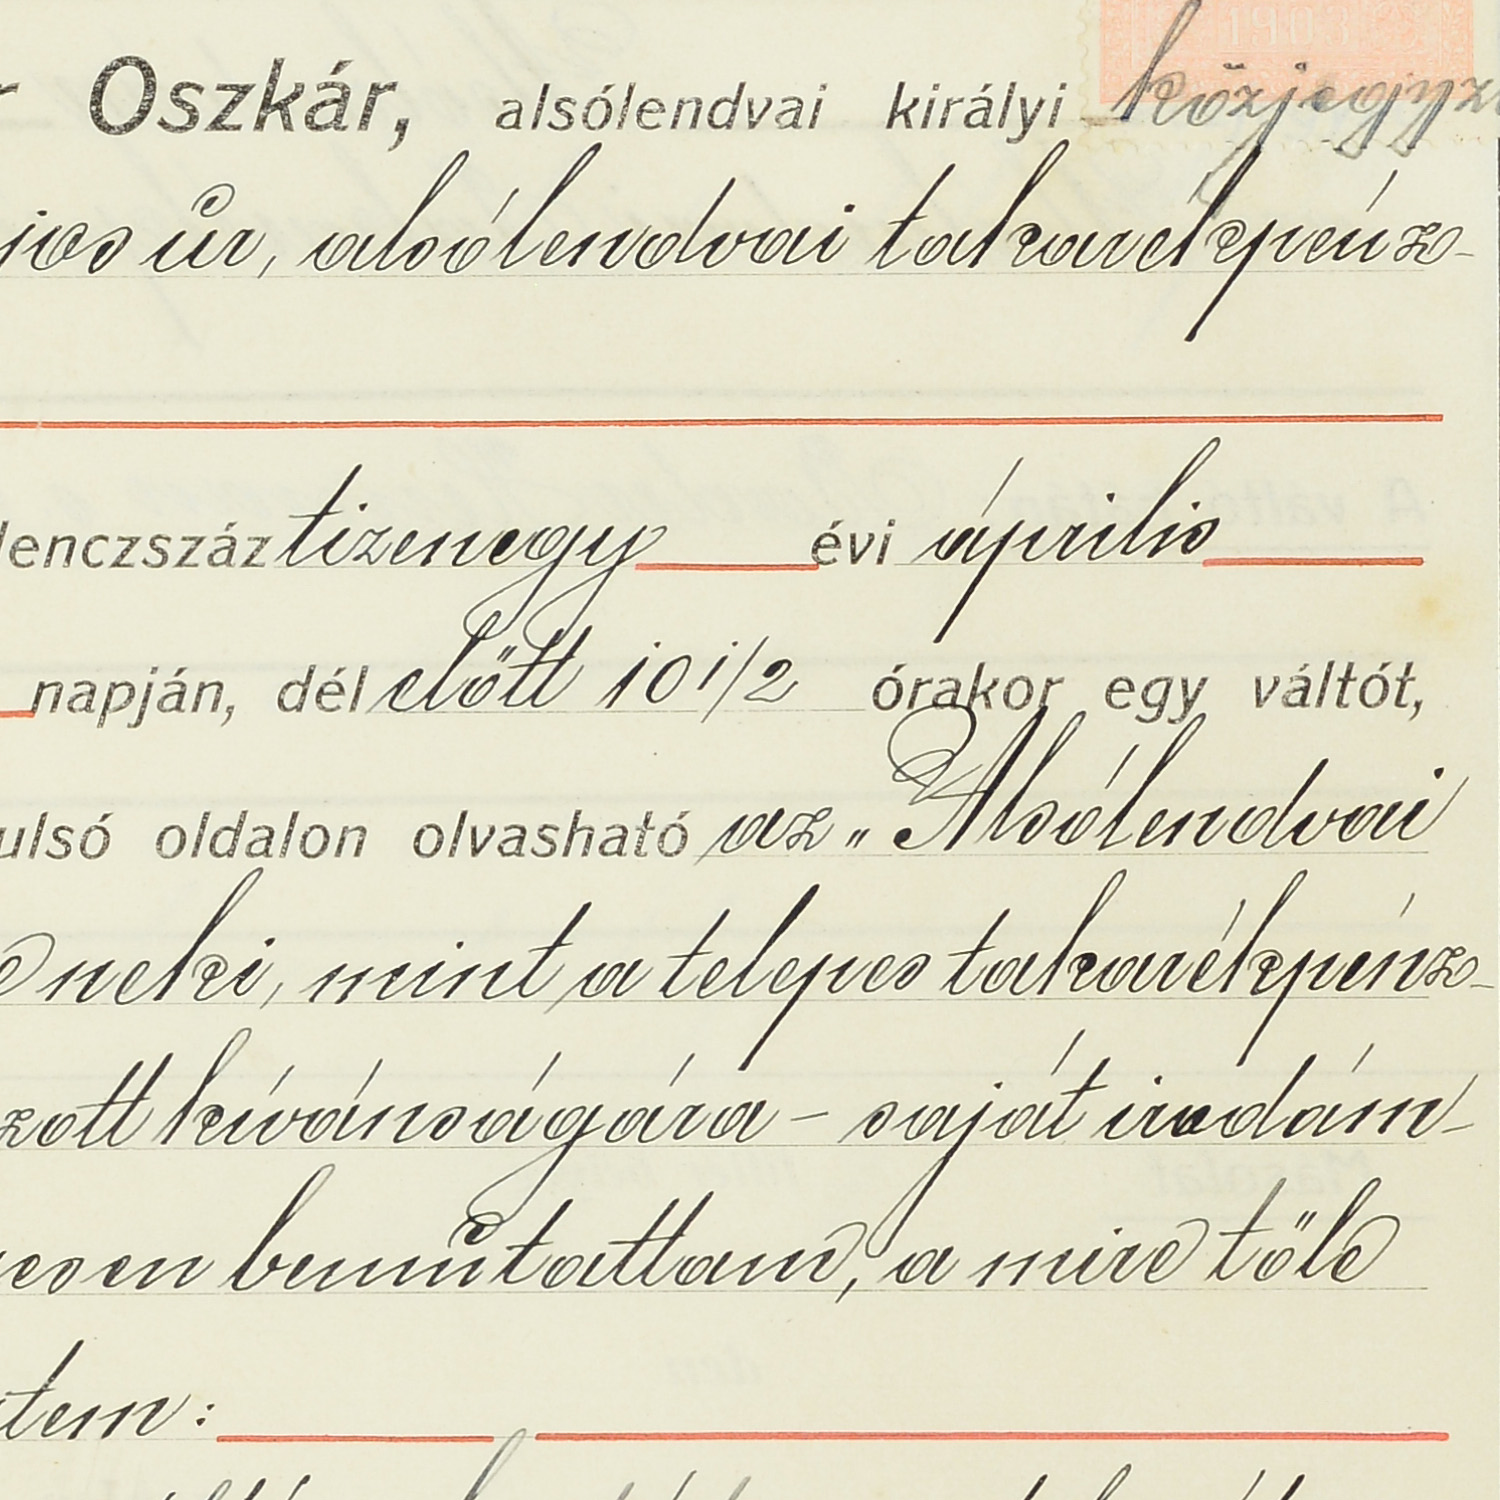 1903
Oszkár, alsólendvai királyi közjegyző
jos úr, alsólendvai takarékpénz-
lenczszáz tizenegy évi április
napján, dél előtt 10 1/2 órakor egy váltót,
ulsó oldalon olvasható az „Alsólendvai
neki, mint a telepes takarékpénz-
zott kívánságára – saját irodám-
esen bemutattam, a mire tőle
tem: